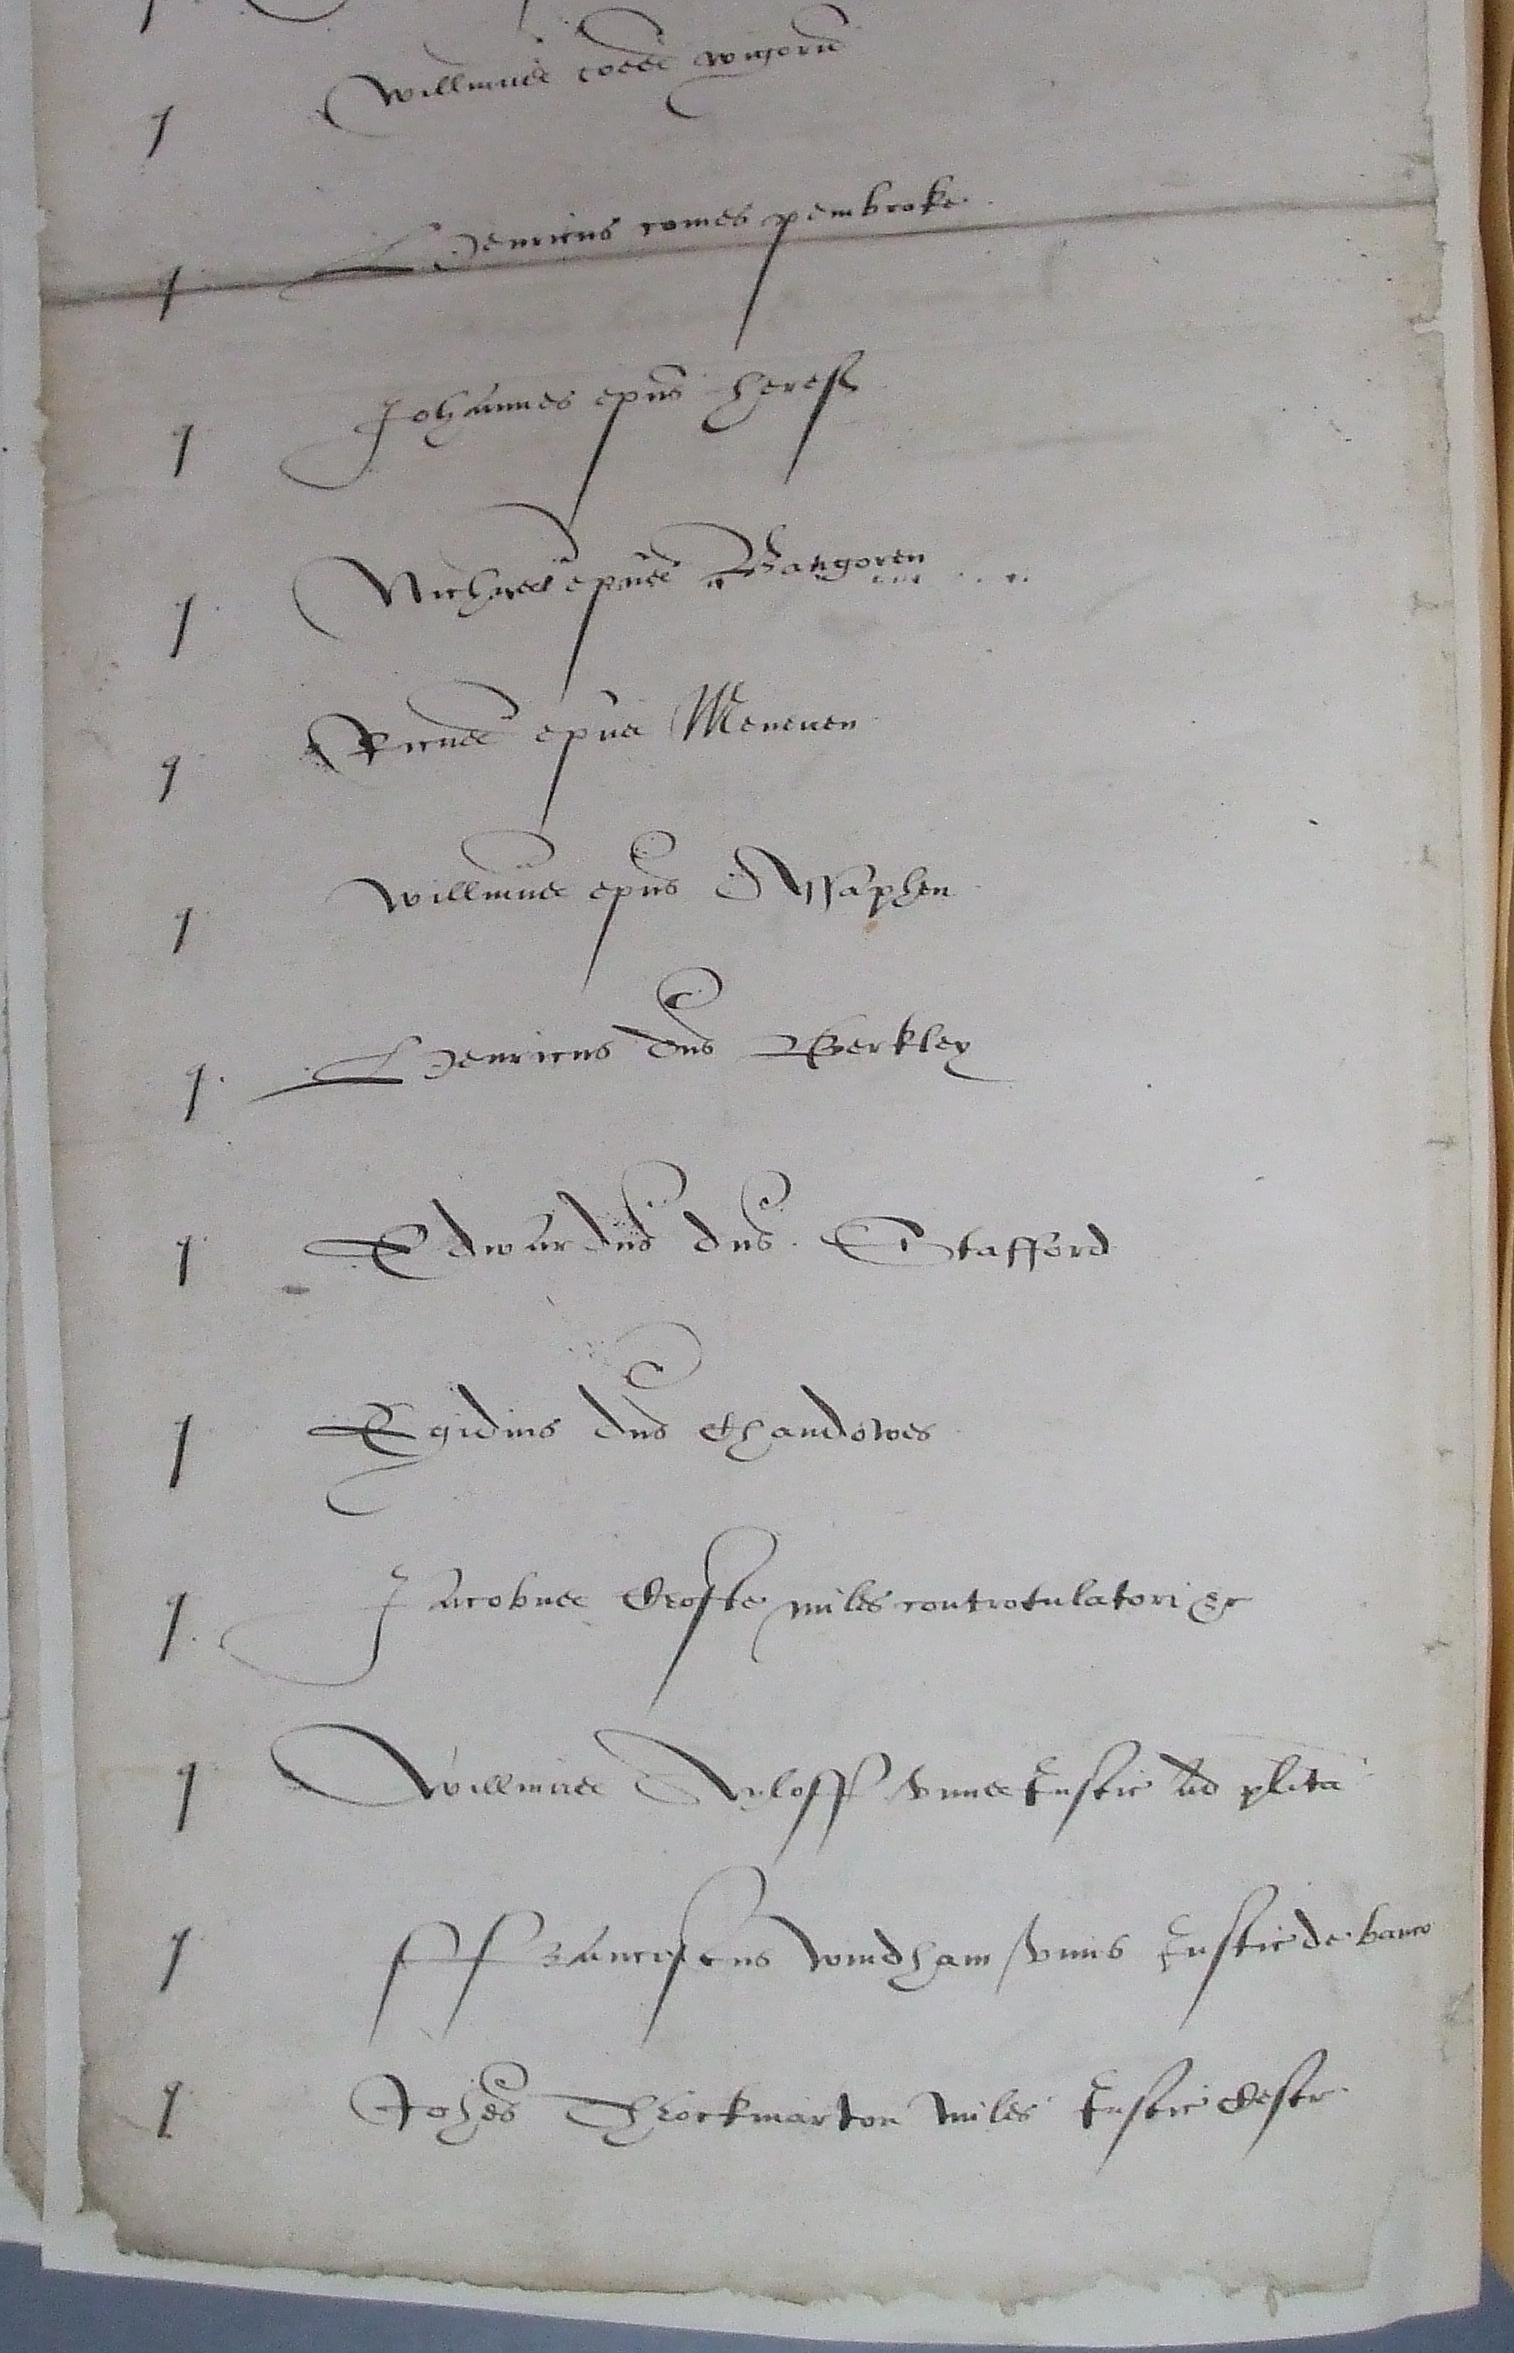 q Willmus comes wigorn
q Henricus comes pembroke
q Johannes epus heref
q Nichus epus Bangoren
q Ricus epus Meneuen
q Willmus epus Assaphen
q Henricus dns Berkley
q Edwardus dns Stafford
q Egidius dns Chandowes
q Jacobus Crofte miles controtulatori &c
q Willmus Ayloff vnus Justic ad plita
q ffranciscus Windham vnus Justic de banco
q Johes Throckmarton miles Justic Cestr